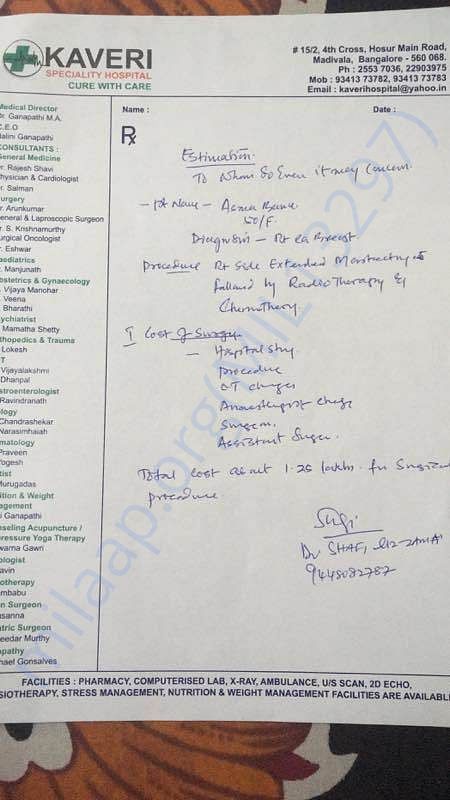 KAVERI
SPECIALITY HOSPITAL
CURE WITH CARE
# 15/2, 4th Cross, Hosur Main Road,
Madivala, Bangalore - 560 068.
Ph : 2553 7036, 22903975
Mob : 93413 73782, 93413 73783
Email : kaverihospital@yahoo.in
Medical Director
Dr. Ganapathi M.A.
C.E.O
alini Ganapathi
CONSULTANTS :
General Medicine
r. Rajesh Shavi
hysician & Cardiologist
r. Salman
urgery
r. Arunkumar
eneral & Laproscopic Surgeon
r. S. Krishnamurthy
urgical Oncologist
r. Eshwar
aediatrics
. Manjunath
bstetrics & Gynaecology
. Vijaya Manohar
. Veena
. Bharathi
ychiatrist
Mamatha Shetty
thopedics & Trauma
Lokesh
T
Vijayalakshmi
Dhanpal
stroenterologist
Ravindranath
logy
Chandrashekar
Narasimhaiah
matology
Praveen
Yogesh
tist
Murugadas
ition & Weight
agement
i Ganapathi
nseling Acupuncture /
ressure Yoga Therapy
warna Gawri
ologist
avin
otherapy
mbabu
n Surgeon
asanna
tric Surgeon
eedar Murthy
opathy
hael Gonsalves
Name :
Date :
Rx
Estimation
To Whom So Ever it may Concern
- Pt Name -
50/F.
Diagnosis - Rt Ca Breast.
Procedure Rt Side Extended
followed by Radio Therapy &
Chemotherapy.
Cost of Surgery
- Hospital stay
procedure
OT charges
charge
Surgeon.
Assistant Surgeon.
Total cost about 1.25 lakhs for Surgical
procedure
9448082787
milaap.org
FACILITIES : PHARMACY, COMPUTERISED LAB, X-RAY, AMBULANCE, U/S SCAN, 2D ECHO,
SIOTHERAPY, STRESS MANAGEMENT, NUTRITION & WEIGHT MANAGEMENT FACILITIES ARE AVAILABL